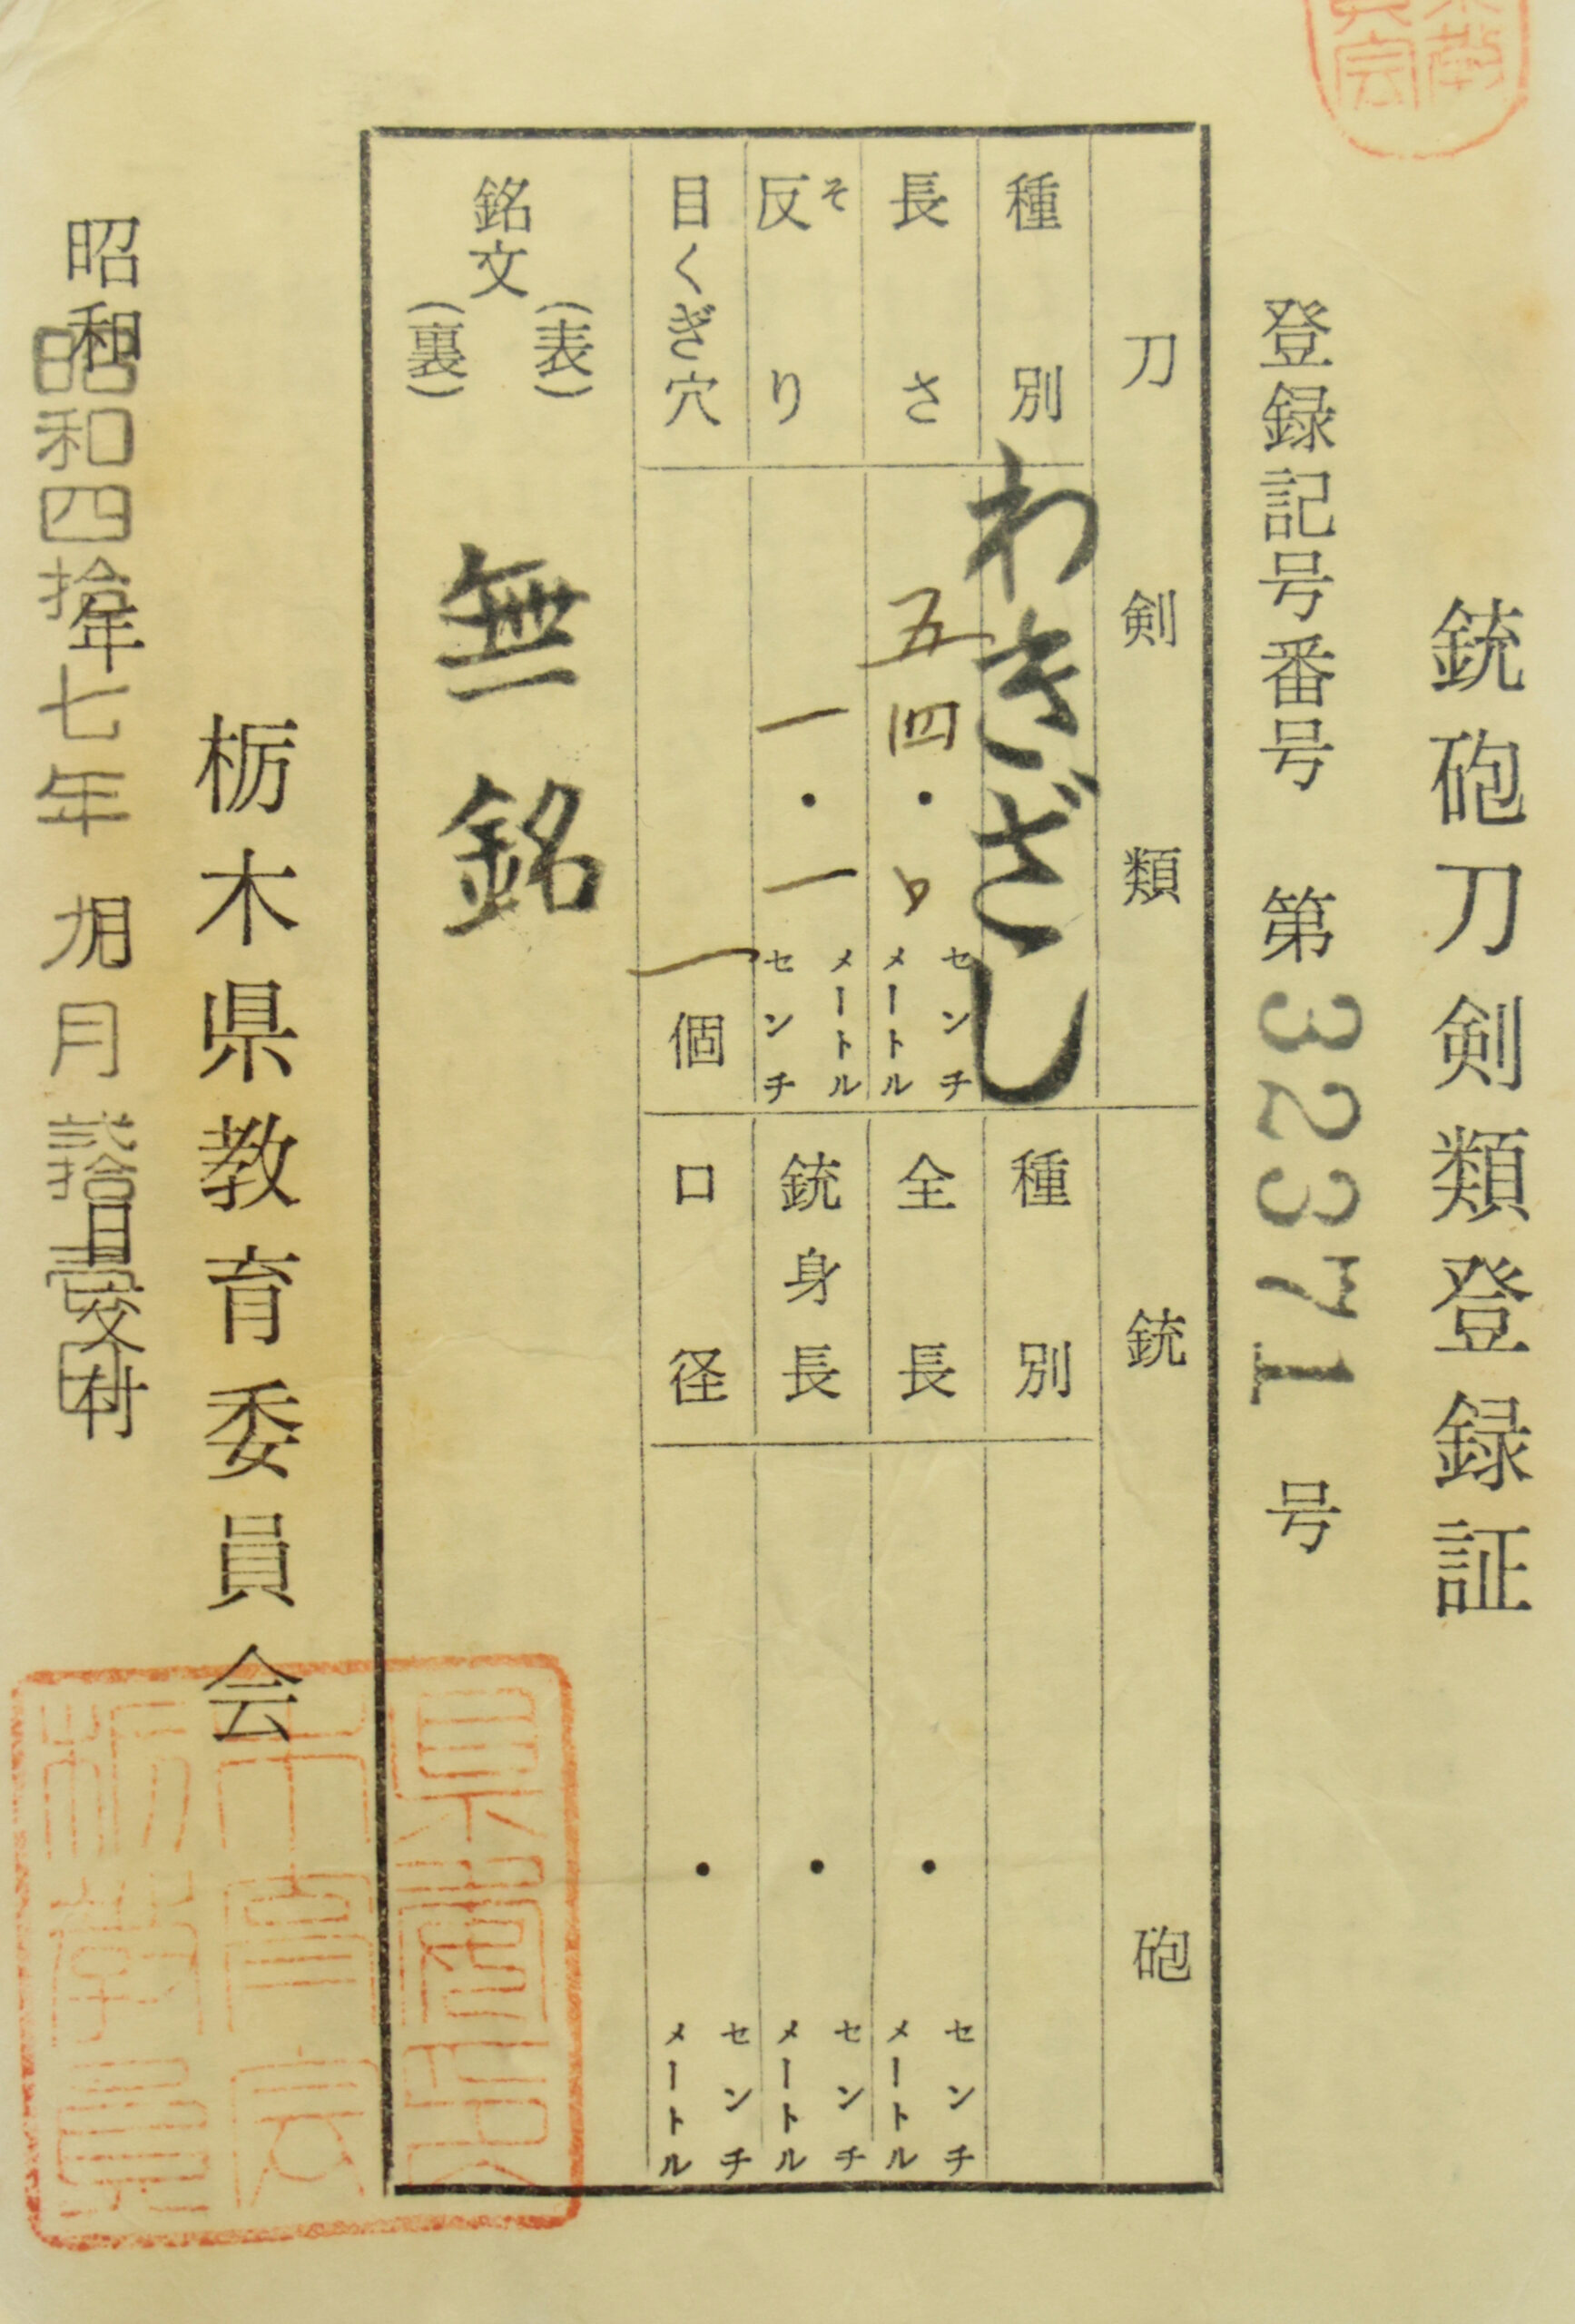 銃砲刀剣類登録証
登録記号番号 第32371号
刀剣類
種別 わきざし
長さ 五四・ センチメートル
反り そ 一・一 センチメートル
目くぎ穴 一個
銘文 (表) 無銘
(裏)
銃砲
種別
全長 ・ センチメートル
銃身長 ・ センチメートル
口径 ・ センチメートル
栃木県教育委員会
昭和 年 月 日交付
昭和四拾七年 月弐拾壱日